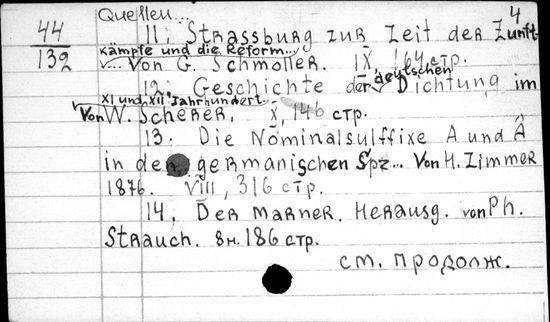 Quellen... 4
44 11. Strassburg zur Zeit der Zunft-
132 kämpfe und die Reform...
Von G. Schmoller. IX, 164 стр.
12. Geschichte der deutschen Dichtung im
XI und XII Jahrhundert.
Von W. Scherer, X, 146 стр.
13. Die Nominalsulffixe A und Â
in den germanischen Spr... Von H. Zimmer
1876. VIII, 316 стр.
14, Der Marner. Herausg. von Ph.
Strauch. 8н. 186 стр.
см. продолж.